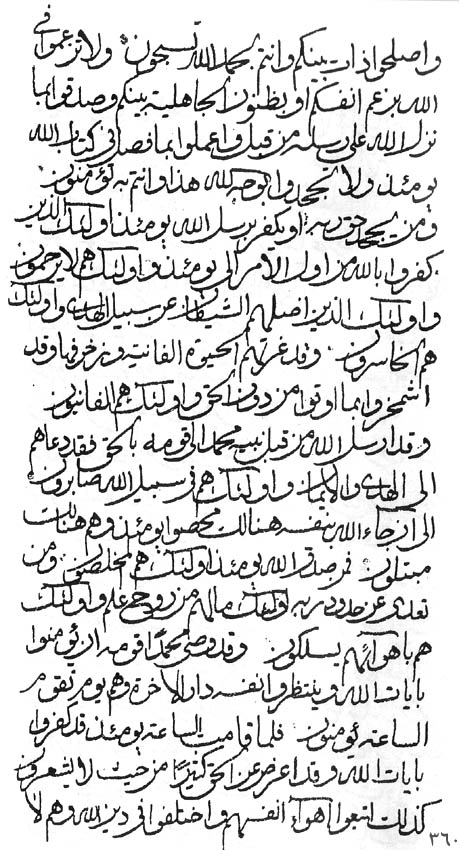 واصلحوا ذات بينكم وانتم بحمد الله تسبحون ولا تزعموا في
الله بزعم انفسكم او بظنون الجاهلية بينكم وصدقوا بما
نزل الله على رسله من قبل واعملوا بما فصل في كتاب الله
يومئذ ولا تجحدوا لوجه الله هذا وانتم به تؤمنون
ومن يجحد حق ربه او يكفر برسل الله يومئذ اولئك الذين
كفروا بالله من اول الامر الى يومئذ واولئك هم لا يرحمون
واولئك الذين اضلهم الشيطان عن سبيل الهدى واولئك
هم الخاسرون وقد غرتهم الحيوة الفانية وزخرفها وقد
اشمخروا بما اوتوا من دون الحق واولئك هم الفانيون
وقد ارسل الله من قبل نبيه محمد الى قومه بالحق فقد دعاهم
الى الهدى والايمان واولئك هم في سبيل الله صابرون
الى ان جاء الله بنفسه هنالك محصوا يومئذ وهم هنالك
مبتلون فمن صدق الله يومئذ اولئك هم مخلصون ومن
تعدى عن حدود ربه اولئك ما لهم من روح علم واولئك
هم باهوائهم يسلكون وقد وصى محمدا قومه ان يؤمنوا
بايات الله وينتظروا نفسه دار الاخرة وهم يوم تقوم
الساعة يؤمنون فلما قامت الساعة يومئذ قد كفروا
بايات الله وقد اعرض عن الحق كثيرا من حيث لا يشعرون
كذلك اتبعوا اهواء انفسهم واختلفوا في دين الله وهم لا
٣٦٠